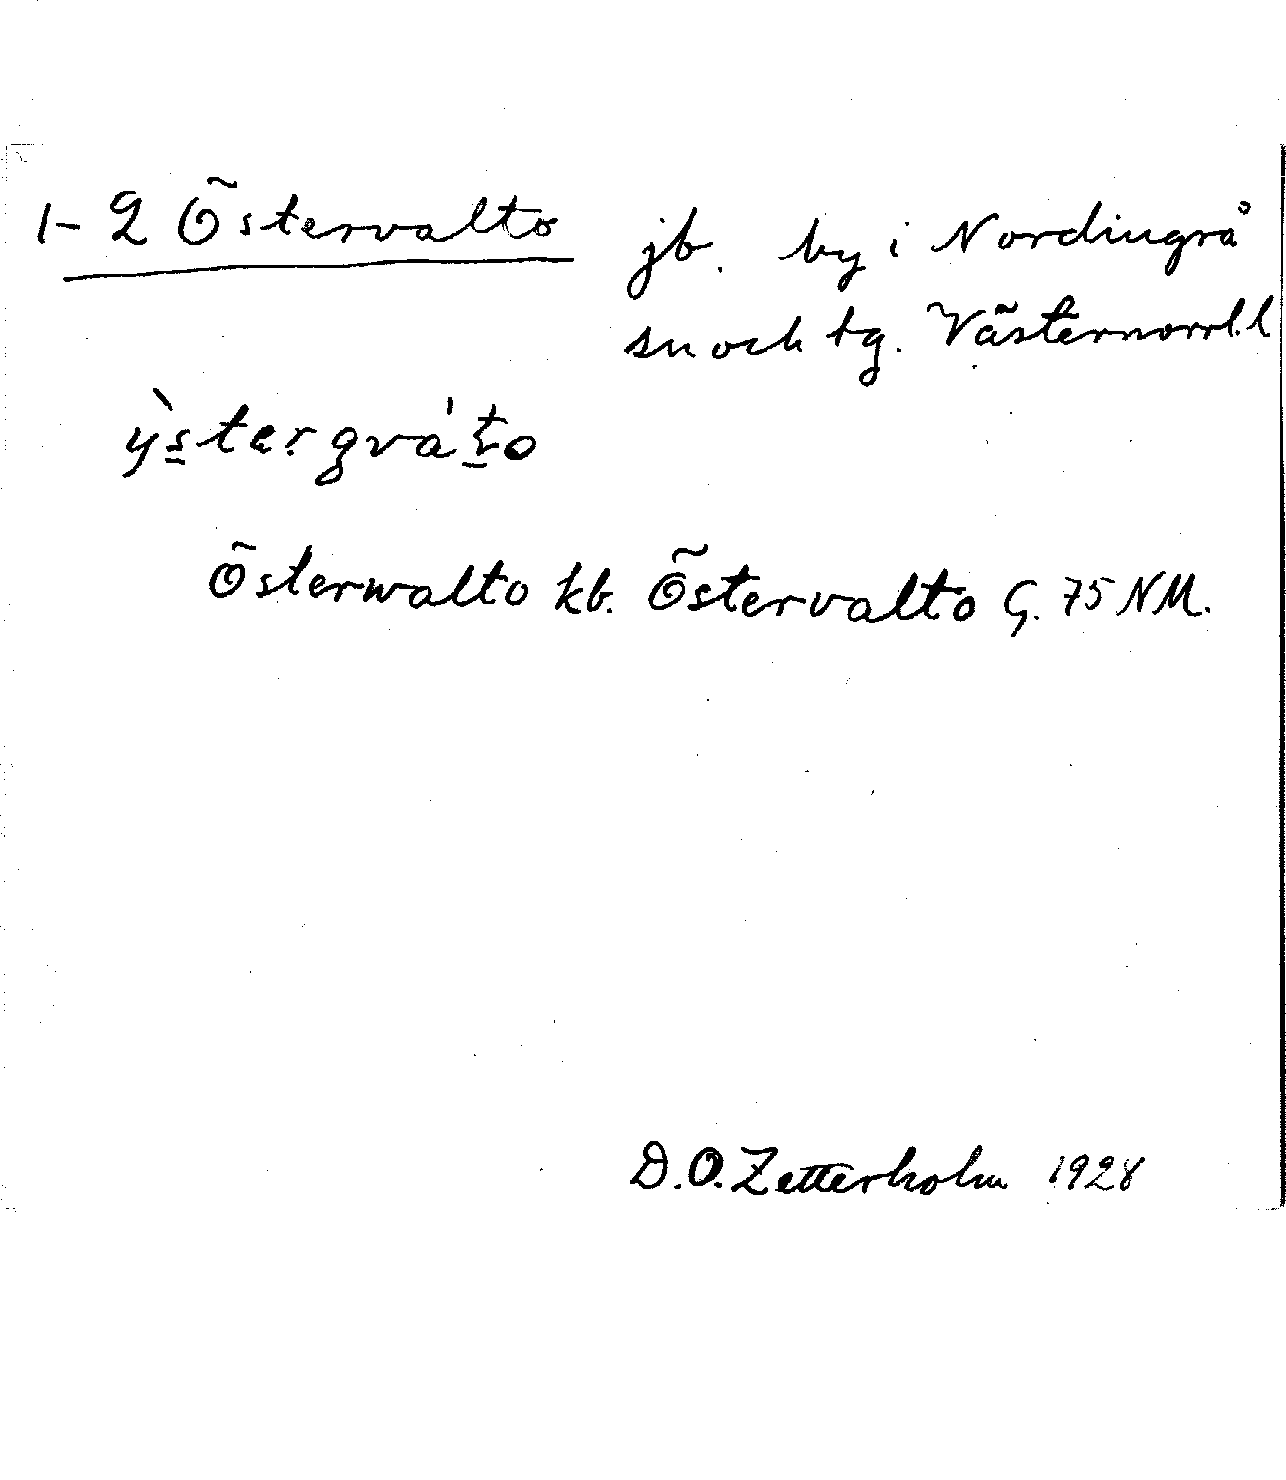 1-2 Östervalto jb. by i Nordingrå
sn och tg. Västernorrl. l
ỳstergváto
Österwalto kb. Östervalto G. 75 NM.
D. O. Zetterholm 1928